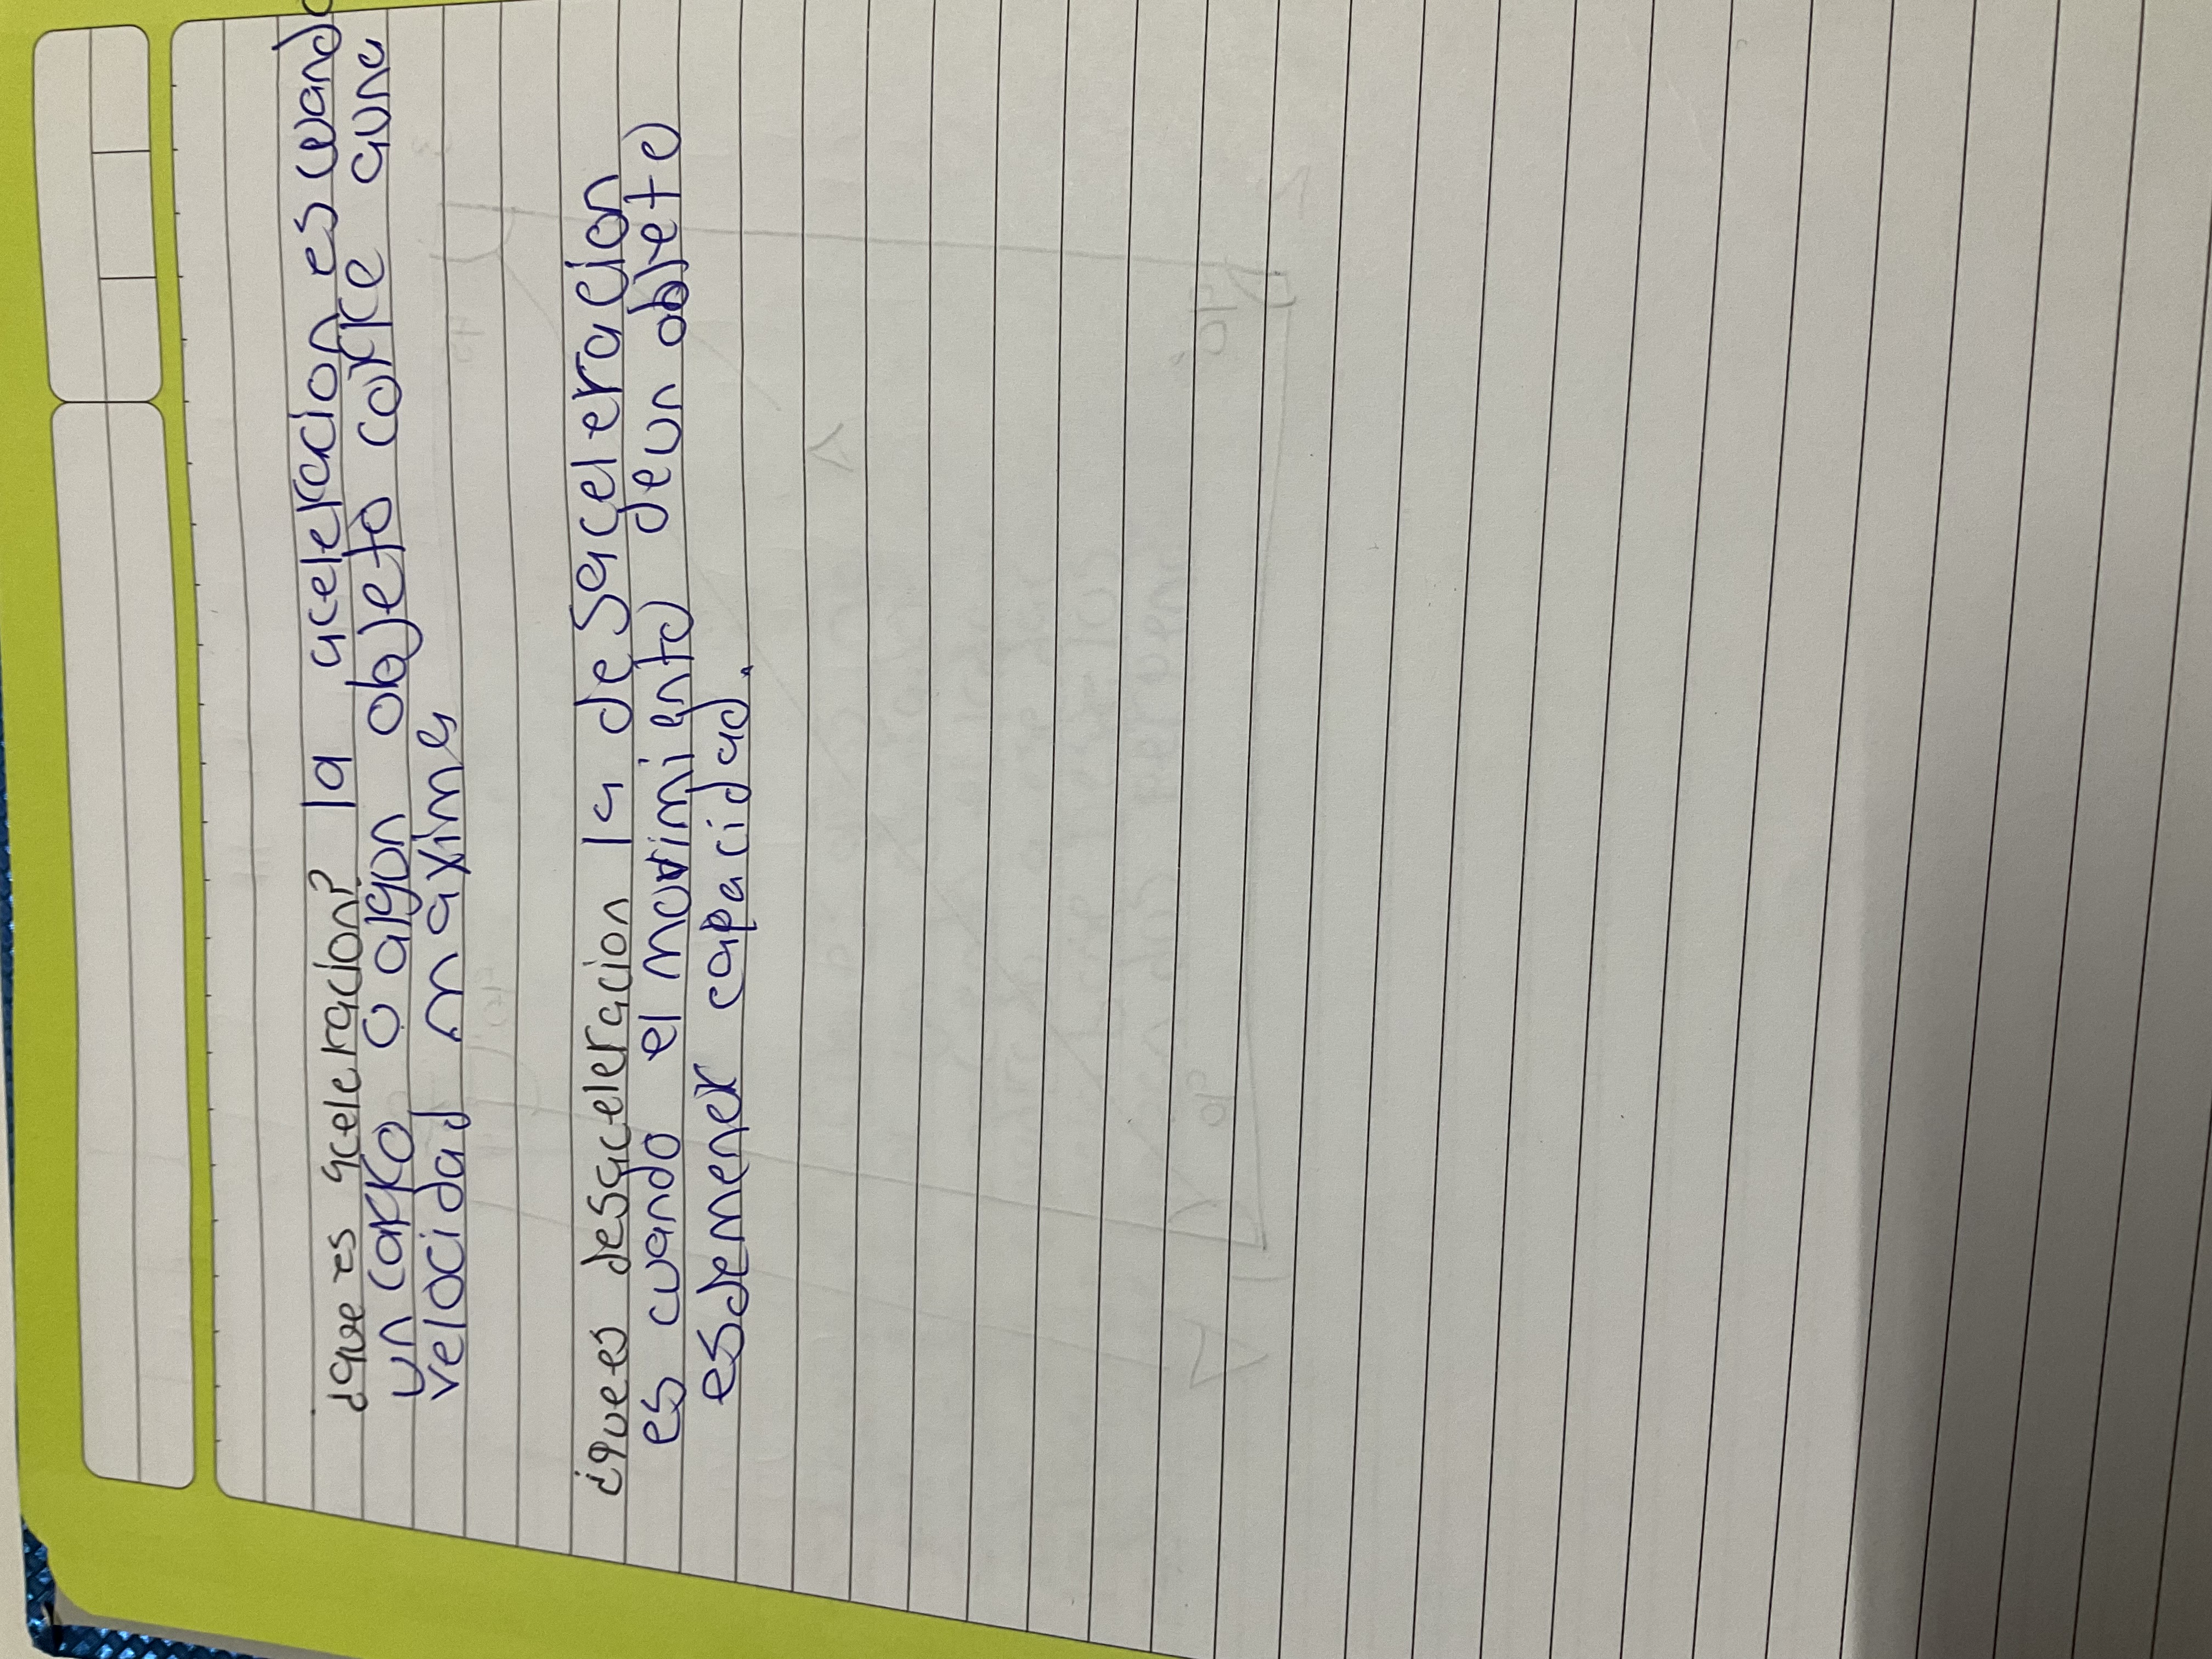 ¿que es aceleracion? la aceleracion es cuando
un carro o algon objeto corre auna
velocidad maxima
¿quees desaceleracion la desaceleracion
es cuando el movimiento deun objeto
esdemener capacidad.